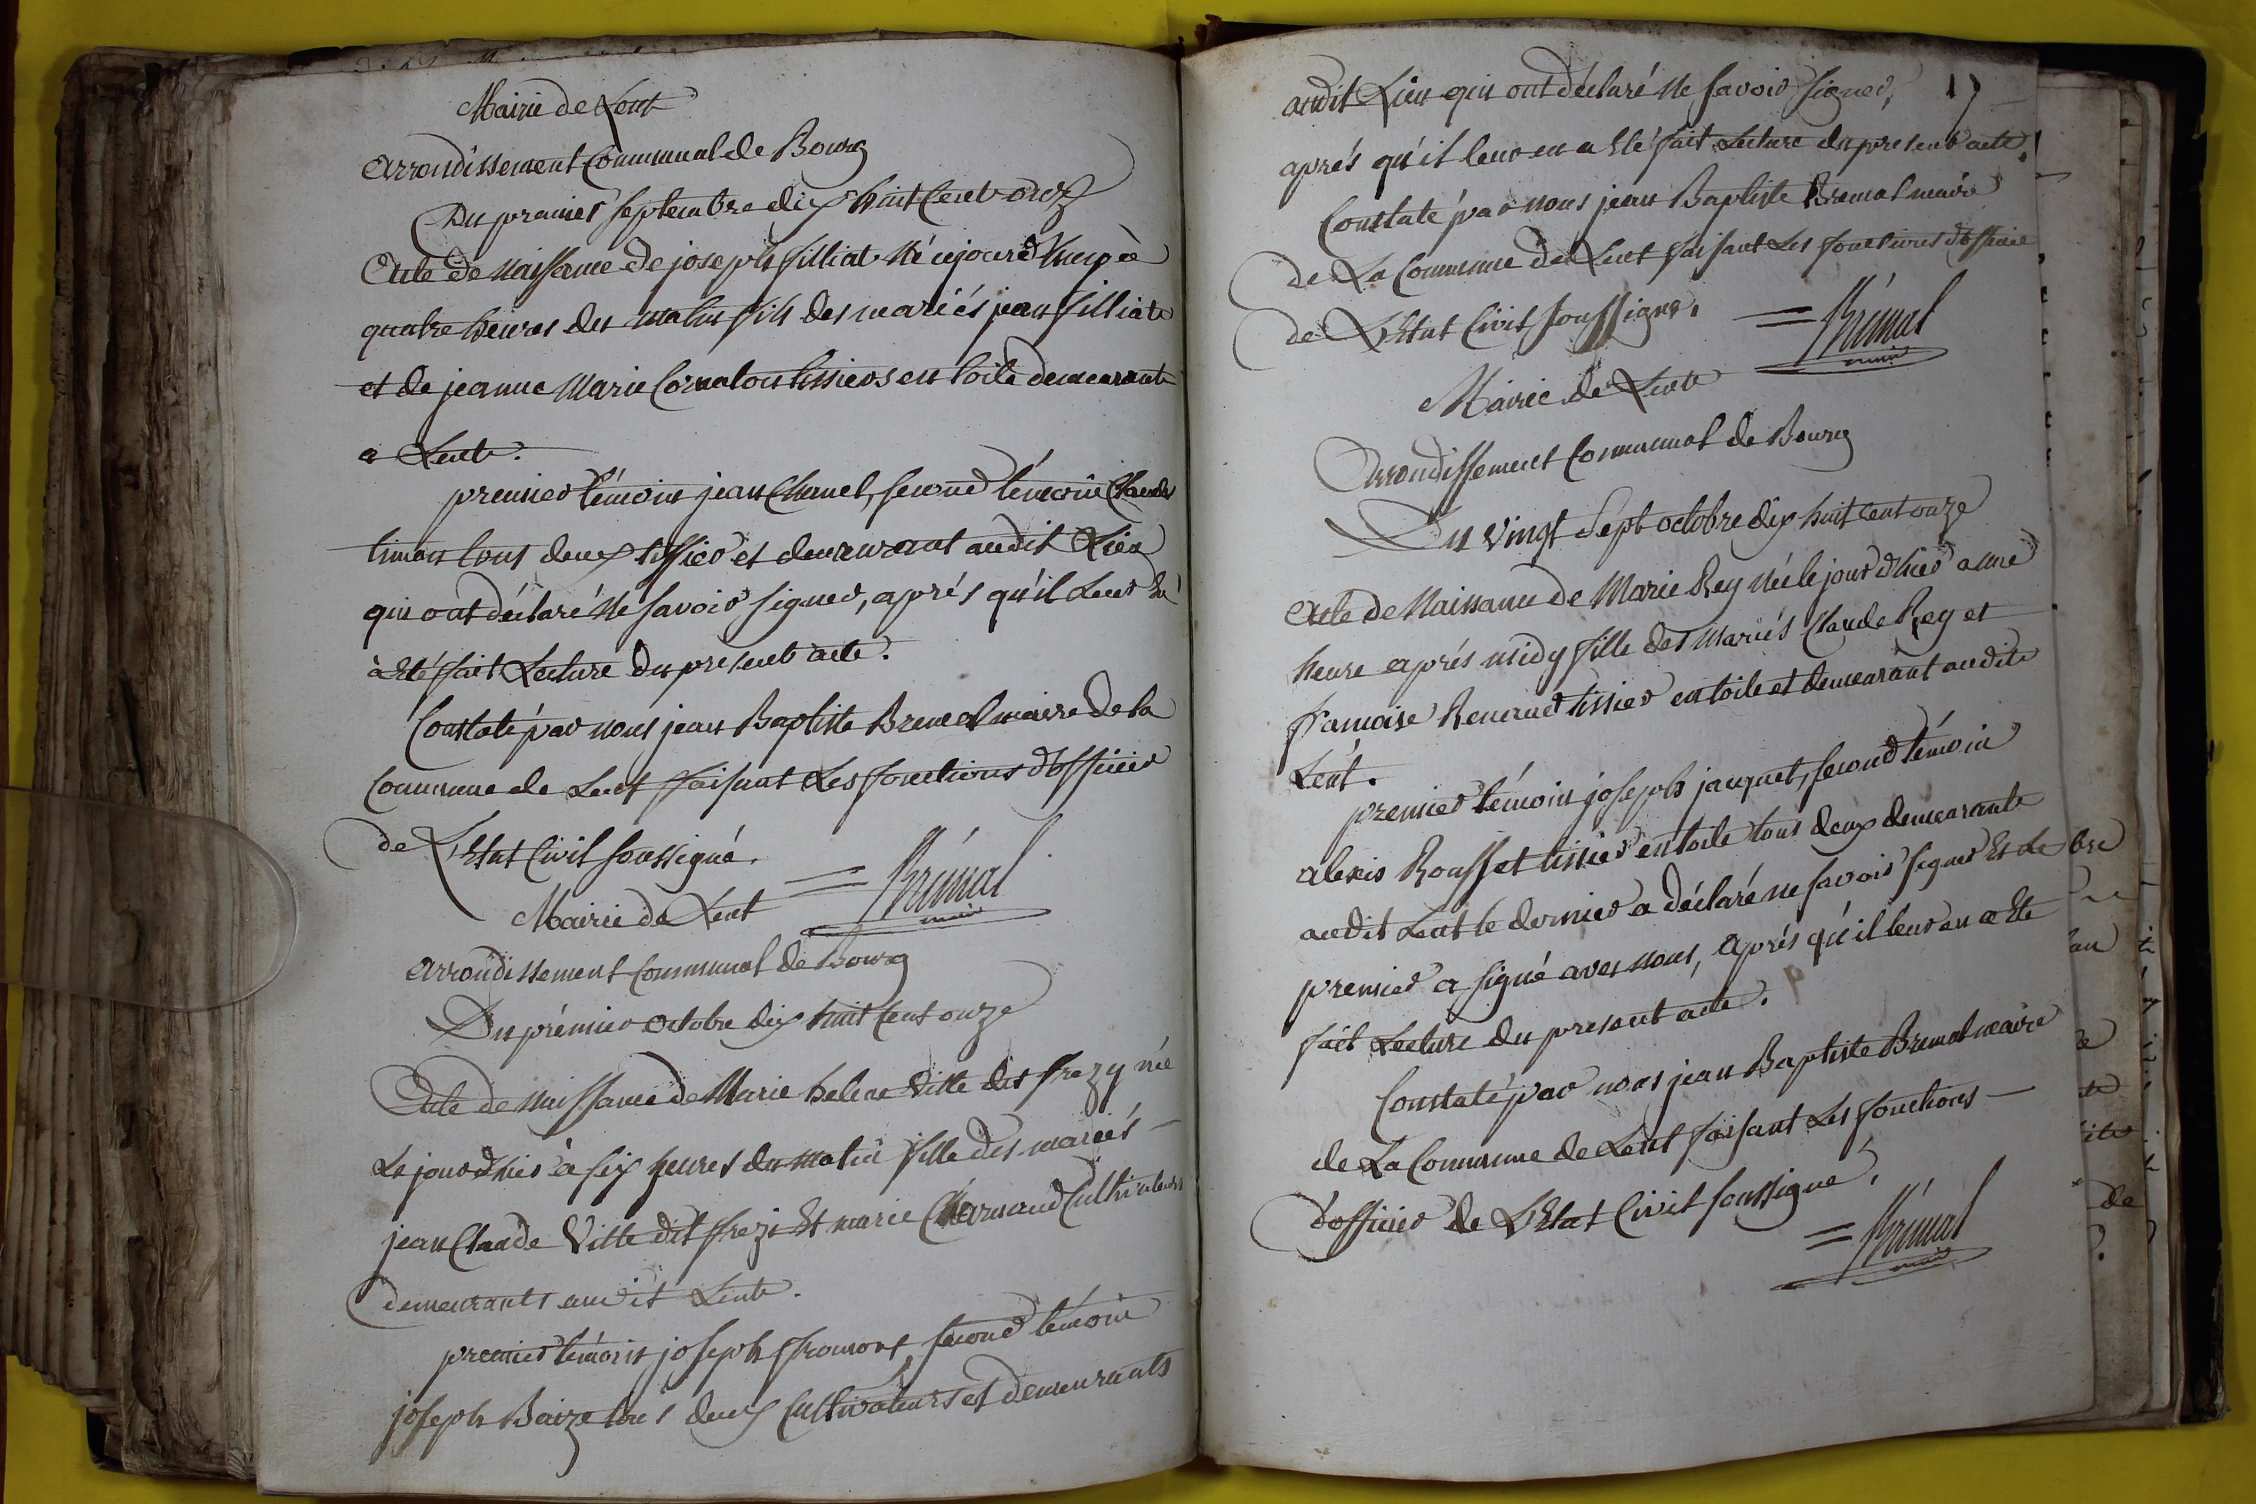 Mairie de Lent
arrondissement Communal de Bourg
Du premier septembre dix huit Cent onze
Acte de Naissance de joseph filliat Né cejourd'huy à
quatre heures du matin fils des mariés jean filliat
et de jeanne Marie Cornaton tissiers en toile demeurant
a Lent.
premier témoin jean Chanel, second témoin Claude
timon tous deux tissier et demeurant audit Lieu
qui ont déclaré Ne savoir signer, aprés qu'il Leur
à Eté fait Lecture du present acte.
Constaté par nous jean Baptiste Bremal maire de la
Commune de Lent faisant Les fonctions d'officier
de L'Etat Civil soussigné.
= Brémal
maire
Mairie de Lent
arrondissement Communal de Bourg
Du prémier octobre dix huit Cent onze
Acte de Naissance de Marie helene Ville dit frezy née
Le jour d'hier à six heures du matin fille des mariés
jean Claude Ville dit frezi Et marie Charnaud Cultivateurs
demeurants audit Lent.
premier témoin joseph fromont second témoin
joseph Baize tous deux Cultivateurs et demeurants
17
audit Lieu qui ont déclaré Ne savoir signer,
aprés qu'il leur en a Eté fait Lecture du present acte.
Constaté par nous jean Baptiste Bremal maire
de La Commune de Lent faisant Les fonctions d'officier
de L'Etat Civil soussigné.
= Brémal
maire
Mairie de Lent
Arrondissement Communal de Bourg
Du vingt sept octobre dix huit cent onze
Acte de Naissance de Marie Rey Née le jour d'hier a une
heure aprés midy fille des Mariés Claude Rey et
francoise Renaud tissier en toile et demeurant audit
Lent.
premier témoin joseph jacquet, second témoin
alexis Rousset tissier en toile tous deux demeurant
audit Lent le dernier a déclaré ne savoir signer Et Le
premier a signé avec nous, aprés qu'il leur en a Eté
fait Lecture du present acte.
Constaté par nous jean Baptiste Bremal maire
de La Commune de Lent faisant Les fonctions
d'officier de L'Etat Civil soussigné.
= Brémal
maire